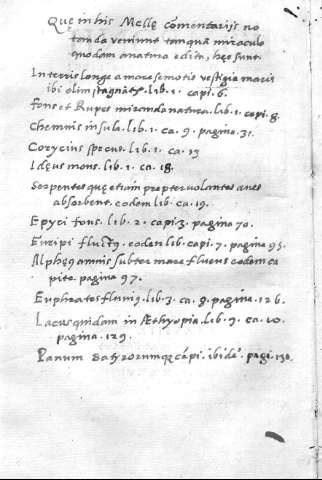 Quę in his Mellę cōmentarijs no
tanda veniunt tanquā miraculo
quodam a natura edito, hęc sunt.
In terris longe a mare semotis vestigia maris
ibi olim stagnātis. lib. 1. capi. 6.
Fons et Rupes miranda natura. lib. 1. capi. 8.
Chemnis insula. lib. 1. ca. 9. pagina. 31.
Corycius specus. lib. 1. ca. 13
Idęus mons. lib. 1. ca. 18.
Serpentes quę etiam prętervolantes aves
absorbent. eodem lib. ca. 19.
Epyri fons. lib. 2. capi. 3. pagina 70.
Euripi fluctꝰ. eodem lib. capi. 7. pagina 95.
Alphęꝰ amnis subter mare fluens eodem ca
pite. pagina 97.
Euphrates fluviꝰ. lib. 3. ca. 8. pagina. 126.
Lacus quidam in Æthyopia. lib. 3. ca. 10.
pagina. 129.
Panum Satyrorumque capi. ibidē. pagi. 130.